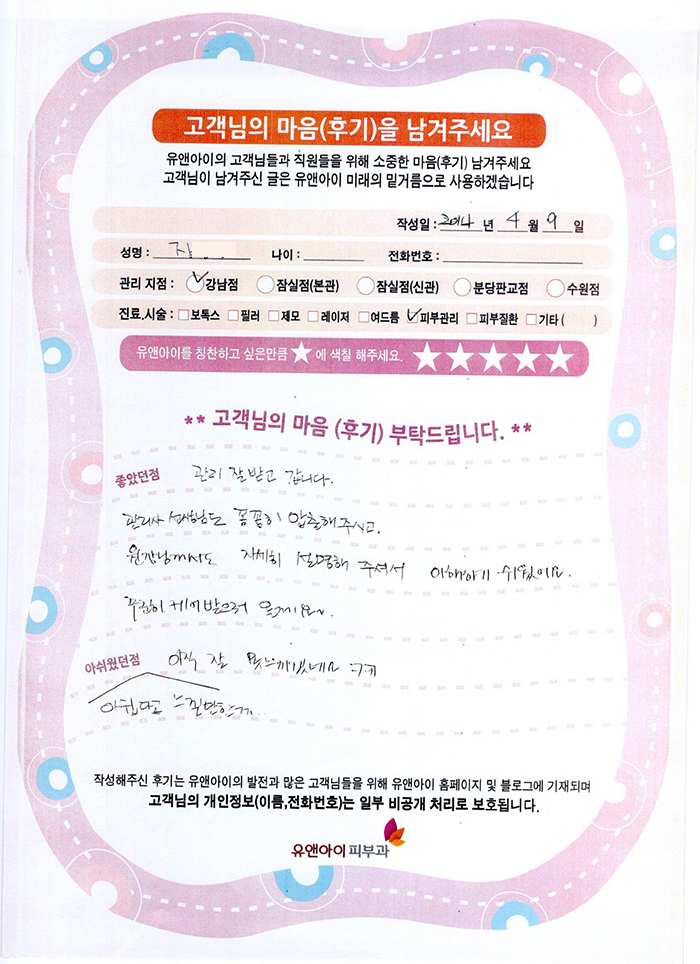 고객님의 마음(후기)을 남겨주세요
유앤아이의 고객님들과 직원들을 위해 소중한 마음(후기) 남겨주세요
고객님이 남겨주신 글은 유앤아이 미래의 밑거름으로 사용하겠습니다
작성일 : 2014 년 4 월 9 일
성명 : 지 나이 : 전화번호 :
관리 지점 : 강남점 잠실점(본관) 잠실점(신관) 분당판교점 수원점
진료.시술 : 보톡스 필러 제모 레이저 여드름 피부관리 피부질환 기타 ( )
유앤아이를 칭찬하고 싶은만큼 ★에 색칠 해주세요. ★★★★★
** 고객님의 마음 (후기) 부탁드립니다. **
좋았던점 관리 잘받고 갑니다.
관리사 선생님도 꼼꼼히 압출해주시고.
원장님께서도 자세히 설명해 주셔서 이해하기 쉬웠어요.
꾸준히 케어받으러 올게요~
아쉬웠던점 아직 잘 못느끼겠네요 ㅋㅋ
아쉽다고 느낄만한게..
작성해주신 후기는 유앤아이의 발전과 많은 고객님들을 위해 유앤아이 홈페이지 및 블로그에 기재되며
고객님의 개인정보(이름,전화번호)는 일부 비공개 처리로 보호됩니다.
유앤아이피부과